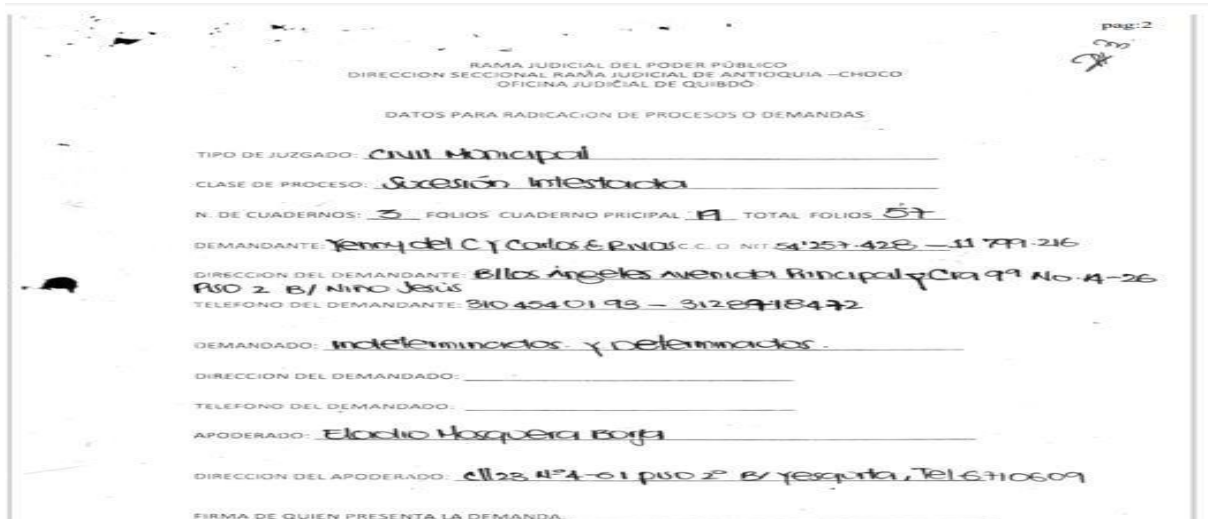 pag:2
RAMA JUDICIAL DEL PODER PÚBLICO
DIRECCION SECCIONAL RAMA JUDICIAL DE ANTIOQUIA –CHOCO
OFICINA JUDICIAL DE QUIBDÓ
DATOS PARA RADICACION DE PROCESOS O DEMANDAS
TIPO DE JUZGADO: Civil Municipal
CLASE DE PROCESO: Sucesión Intestada
N. DE CUADERNOS: 3 FOLIOS CUADERNO PRICIPAL TOTAL FOLIOS 57
DEMANDANTE: Yenny del C y Carlos E Rivas C.C. O NIT 54'257.428 – 11 799.216
DIRECCION DEL DEMANDANTE: B/los Ángeles Avenida Principal y Cra 9ª No.
PISO 2 B/ Niño Jesús
TELEFONO DEL DEMANDANTE: 310 4540193 – 3128918472
DEMANDADO: Indeterminados y Determinados.
DIRECCION DEL DEMANDADO:
TELEFONO DEL DEMANDADO:
APODERADO: Eladio Mosquera Borja
DIRECCION DEL APODERADO: Cll 23 Nº4-61 piso 2º B/ Yesquita, Tel 6710609
FIRMA DE QUIEN PRESENTA LA DEMANDA